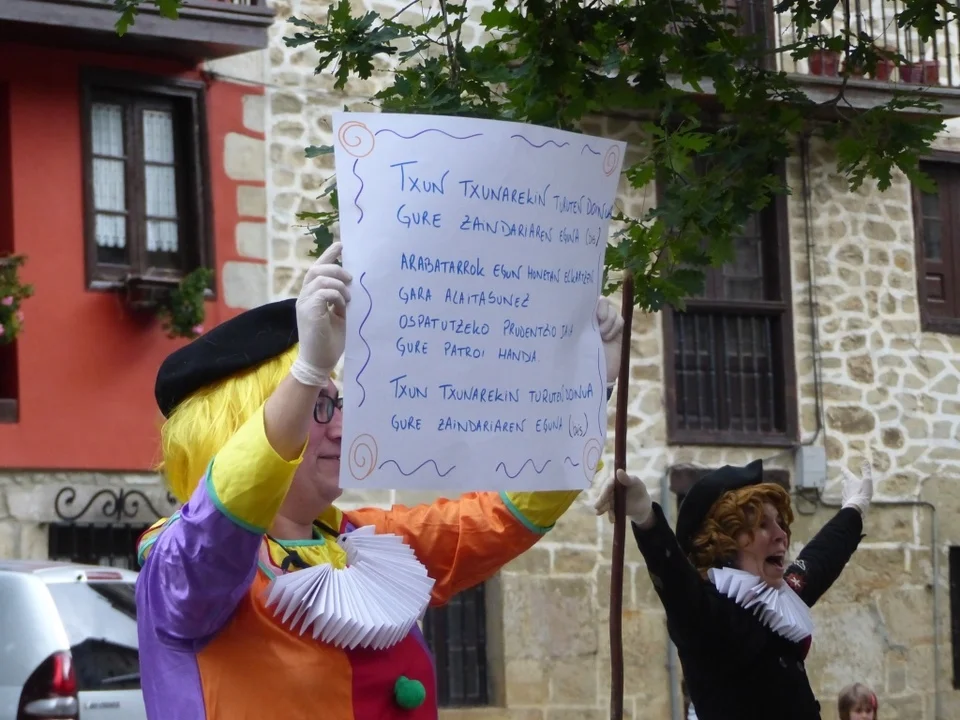 TXUN TXUNAREKIN TURUTEN DOINUA
GURE ZAINDARIAREN EGUNA (bis)
ARABATARROK EGUN HONETAN ELKARTZEN
GARA ALAITASUNEZ
OSPATUTZEKO PRUDENTZIO
GURE PATROI HANDIA.
TXUN TXUNAREKIN TURUTEN DOINUA
GURE ZAINDARIAREN EGUNA (bis)